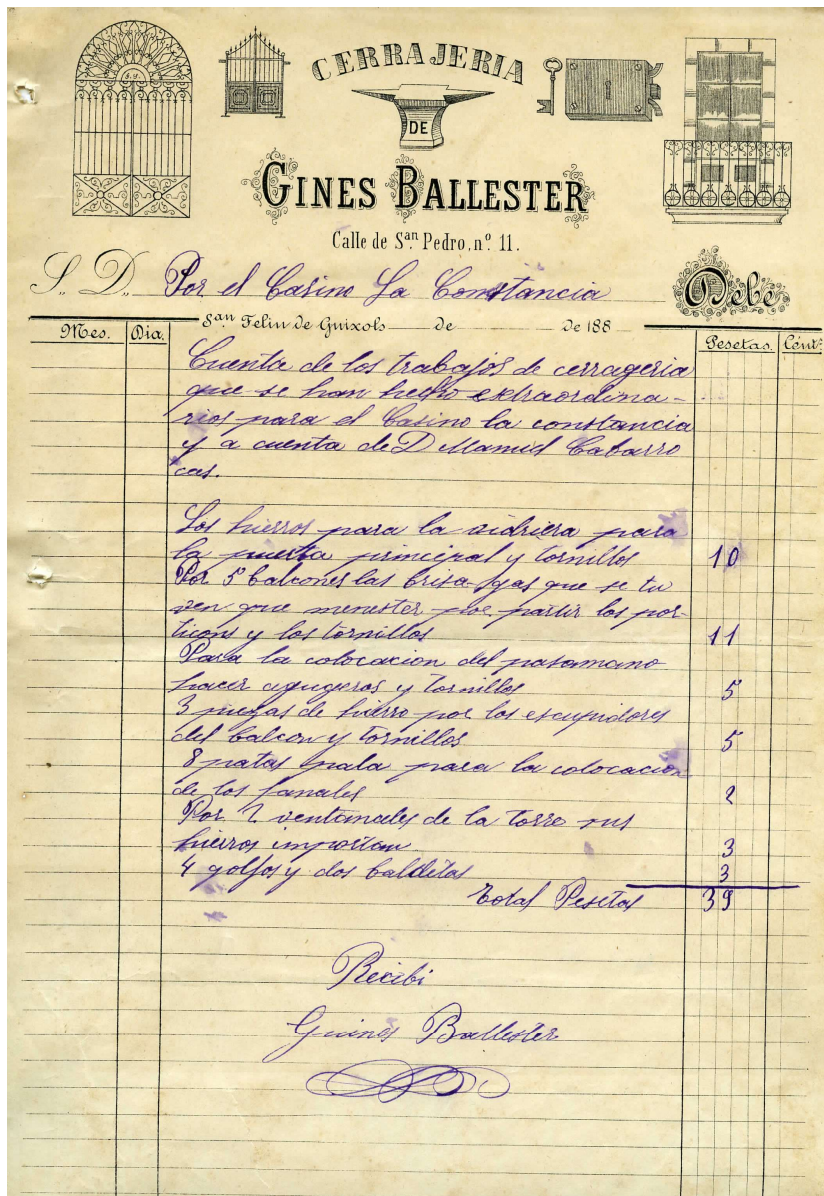 CERRAJERIA
DE
GINES BALLESTER
Calle de San Pedro, nº. 11.
S. D. Por el Casino La Constancia
Debe
San Feliu de Guixols de de 188
Mes. Dia. Pesetas. Cént.
Cuenta de los trabajos de cerrageria
que se han hecho extraordina-
rios para el Casino la constancia
y a cuenta de D Manuel Cabarro
cas.
Los hierros para la vidriera para
la puerta principal y tornillos 10
Por 5 balcones las brisagas que se tu
ven que menester por partir los por-
ticons y los tornillos 11
Para la colocacion del pasamano
hacer agugeros y tornillos 5
3 piezas de hierro por los escupidores
del balcon y tornillos 5
8 patas pala para la colocacion
de los fanales 2
Por 2 ventanales de la torre sus
hierros importan 3
4 golfos y dos balditas 3
Total Pesetas 39
Recibi
Guines Ballester